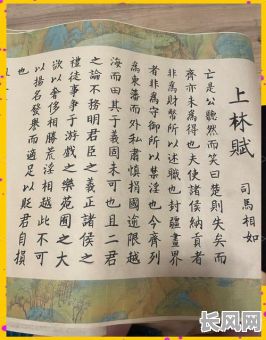 上林賦
司馬相如
亡是公聽然而笑曰楚則失矣而
齊亦未爲得也夫使諸侯納貢者
非爲財幣所以述職也封疆畫界
者非爲守御所以禁淫也今齊列
爲東藩而外私肅慎捐國逾限越
海而田其于義固未可也且二君
之論不務明君臣之義正諸侯之
禮徒事爭于游戲之樂苑囿之大
欲以奢侈相勝荒淫相越此不可
以揚名發譽而適足以貶君自損
也
长风网